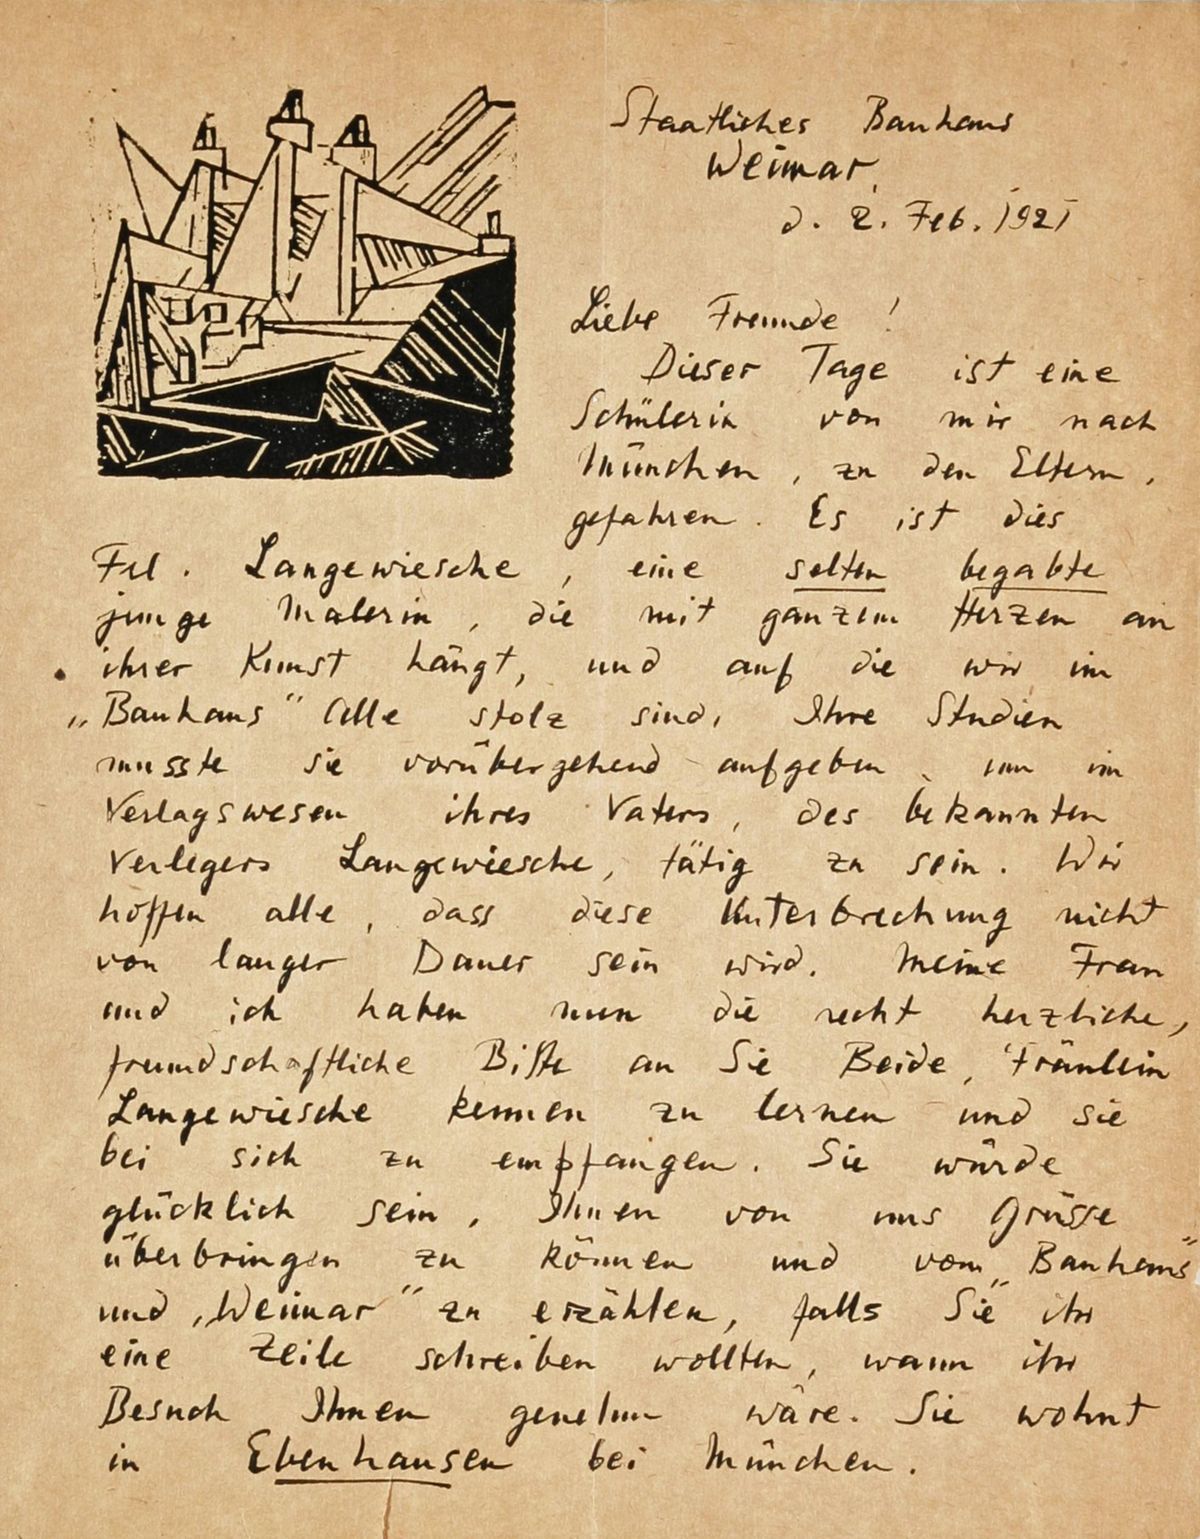 Staatliches Bauhaus
Weimar,
d. 2. Feb. 1921
Liebe Freunde !
Dieser Tage ist eine
Schülerin von mir nach
München, zu den Eltern,
gefahren. Es ist dies
Frl. Langewiesche, eine selten begabte
junge Malerin, die mit ganzem Herzen an
ihrer Kunst hängt, und auf die wir im
„Bauhaus" Alle stolz sind. Ihre Studien
musste sie vorübergehend aufgeben, um im
Verlagswesen ihres Vaters, des bekannten
Verlegers Langewiesche, tätig zu sein. Wir
hoffen alle, dass diese Unterbrechung nicht
von langer Dauer sein wird. Meine Frau
und ich haben nun die recht herzliche,
freundschaftliche Bitte an Sie Beide, Fräulein
Langewiesche kennen zu lernen und sie
bei sich zu empfangen. Sie würde
glücklich sein, Ihnen von uns Grüsse
überbringen zu können und vom „Bauhaus"
und „Weimar" zu erzählen, falls Sie ihr
eine Zeile schreiben wollten, wann ihr
Besuch Ihnen genehm wäre. Sie wohnt
in Ebenhausen bei München.